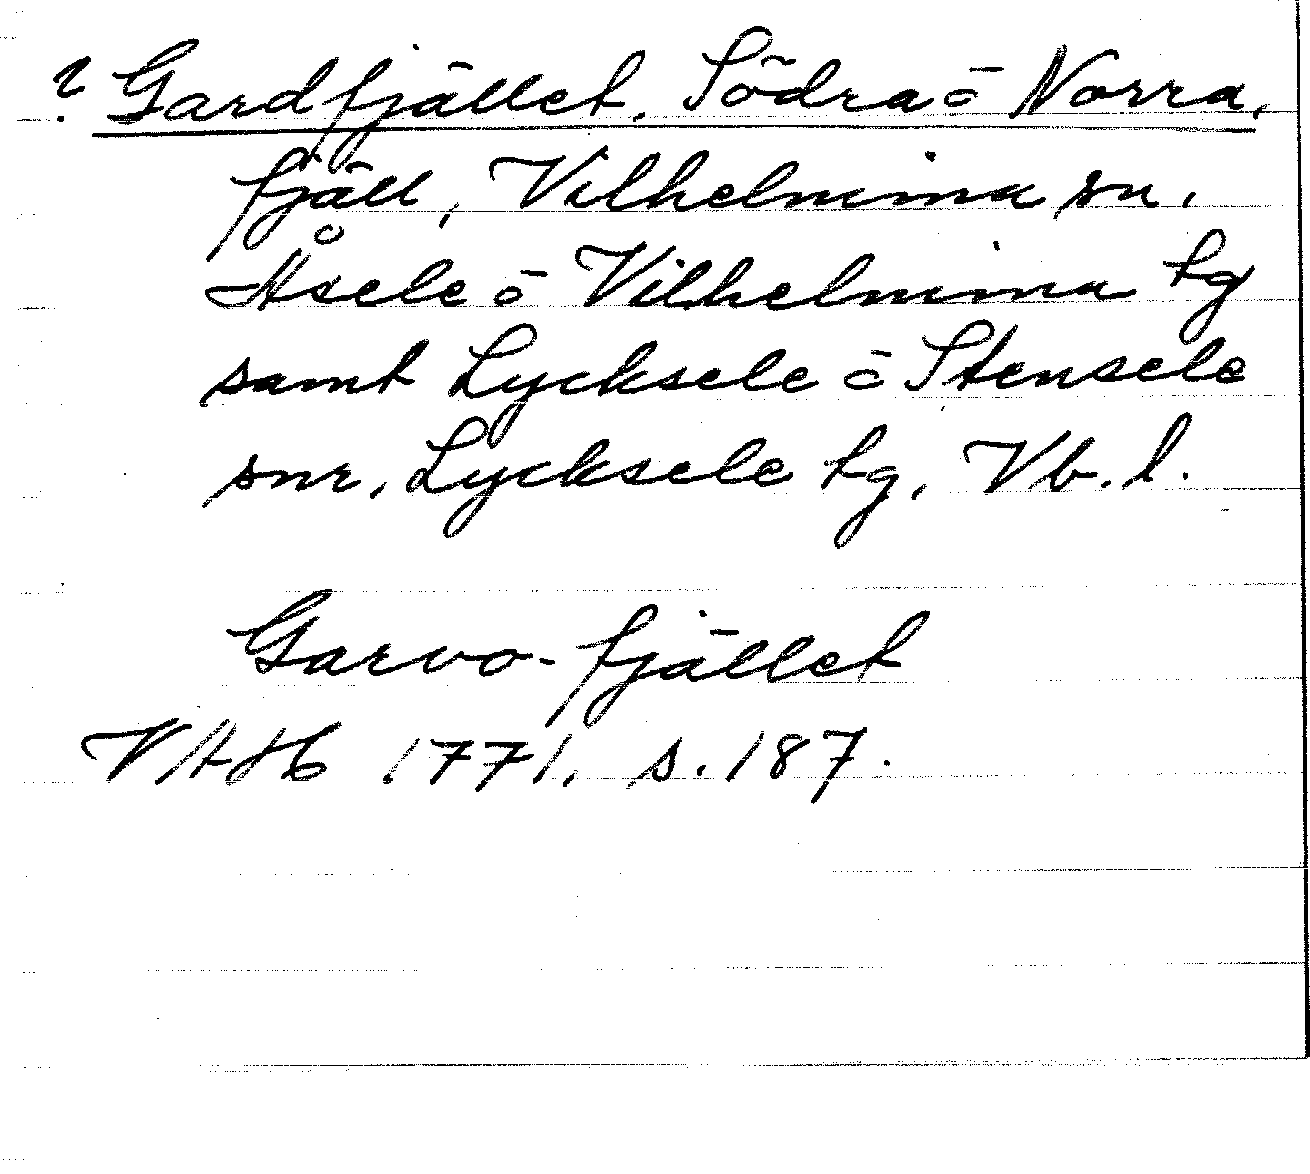 ? Gardfjället, Södra o Norra,
fjäll, Vilhelmina sn.
Åsele o Vilhelmina tg
samt Lycksele o Stensele
snr, Lycksele tg, Vb. l.
Garvo-fjället
VAH 1771, s. 187.